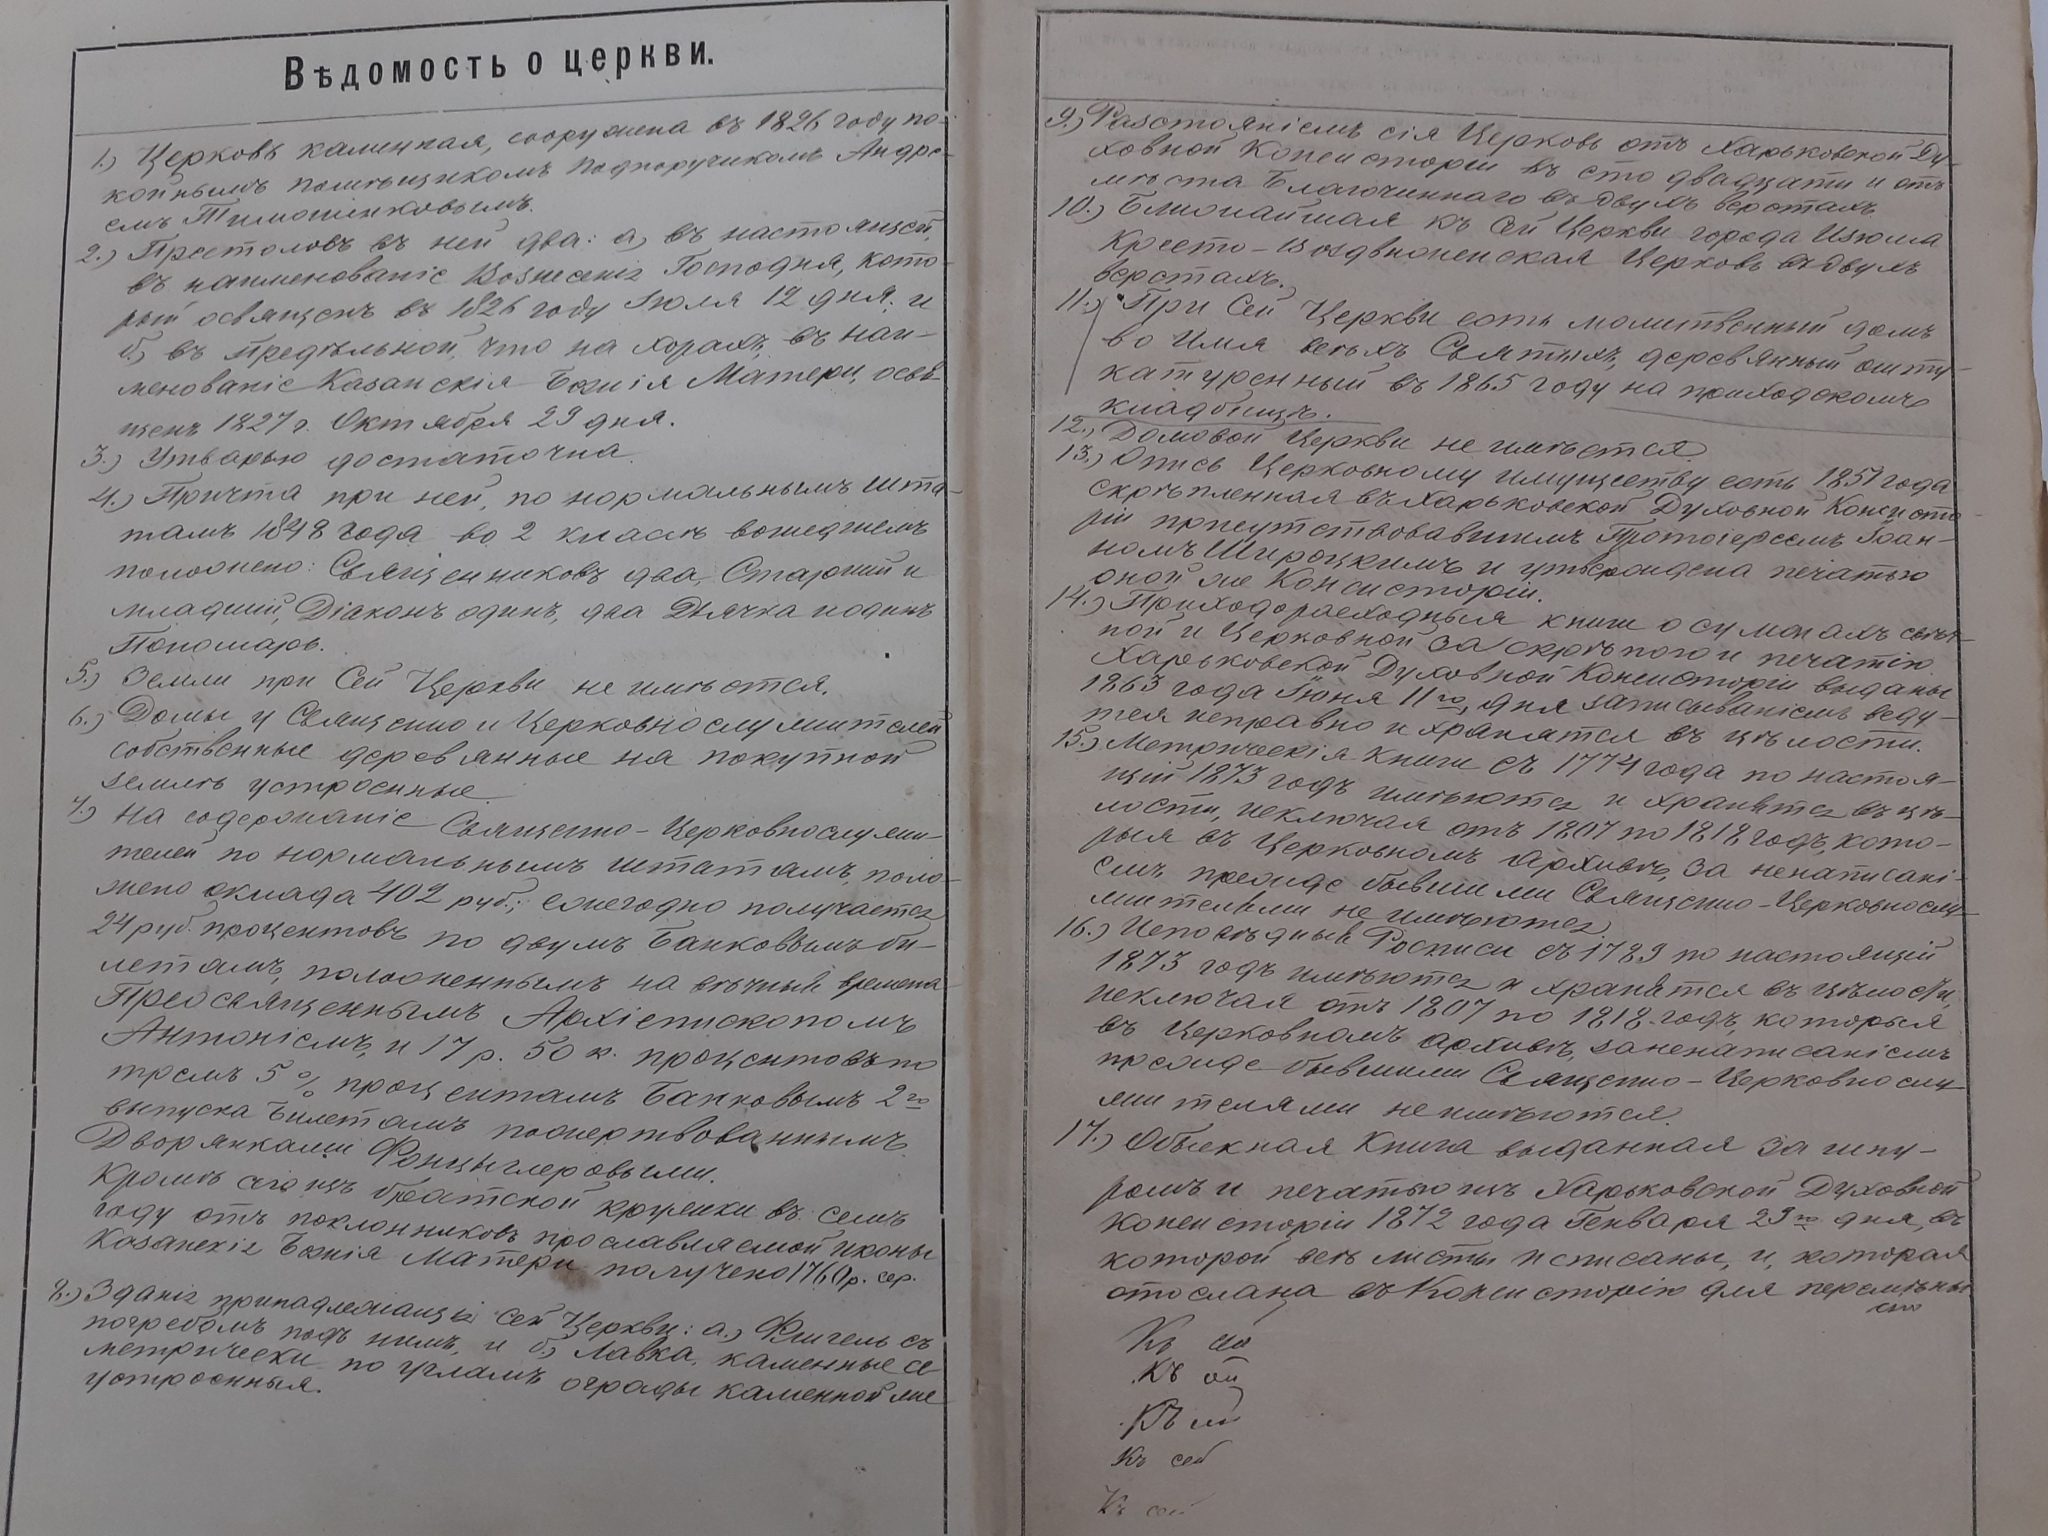 Вѣдомость о церкви.
1.) Церковь каменная, сооружена въ 1826 году по-
койнымъ помѣщикомъ Подпоручикомъ Андре-
емъ Тимошенковымъ.
2.) Престоловъ въ ней два: а, въ настоящей,
въ наименованіе Вознесенія Господня, кото-
рый освященъ въ 1826 году Іюля 12 дня, и
б, въ Предѣльной, что на хорахъ, въ наи-
менованіе Казанскія Божія Матери, освя-
щенъ 1827 г. Октября 29 дня.
3.) Утварью достаточна.
4.) Причта при ней, по нормальнымъ шта-
тамъ 1848 года во 2 классъ вошедшемъ
положено: Священниковъ два, Старшій и
младшій, Діаконъ одинъ, два Дьячка и одинъ
Пономарь.
5.) Земли при Сей Церкви не имѣется.
6.) Домы у Священно и Церковнослужителей
собственные деревянные на покупной
землѣ устроенные.
7.) На содержаніе Священно-Церковнослужи-
телей по нормальнымъ штатамъ, поло-
жено оклада 402 руб.; ежегодно получается
24 руб. процентовъ по двумъ Банковымъ би-
летамъ, положеннымъ на вѣчныя времена
Преосвященнымъ Архіепископомъ
Антоніемъ, и 17 р. 50 к. процентовъ по
тремъ 5 % процентамъ Банковымъ 2го
выпуска Билетамъ пожертвованнымъ
Дворянками Фонцыглеровыми.
Кромѣ сего изъ братской кружки въ семъ
году отъ поклонниковъ прославляемой иконы
Казанскія Божія Матери получено 1760 р. сер.
8.) Зданія принадлежащія сей Церкви: а.) Флигель съ
погребомъ подъ нимъ, и б, Лавка, каменные се
метрически по угламъ ограды каменной же
устроенныя.
9.) Разстояніемъ сія Церковь отъ Харьковской Ду-
ховной Консисторіи въ сто двадцати и отъ
мѣста Благочиннаго въ двухъ верстахъ
10.) Ближайшая къ сей Церкви города Изюма
Кресто-Воздвиженская Церковь въ двухъ
верстахъ.
11.) При Сей Церкви есть молитвенный домъ
во Имя всѣхъ Святыхъ, деревянный ошту-
катуренный въ 1865 году на приходскомъ
кладбищѣ.
12.) Домовой Церкви не имѣется.
13.) Опись Церковному имуществу есть 1851 года
скрѣпленная въ Харьковской Духовной Консисто-
ріи присутствовавшимъ Протоіереемъ Іоан-
номъ Широцкимъ и утверждена печатью
оной же Консисторіи.
14.) Приходорасходныя книги о суммахъ свѣч-
ной и Церковной за скрѣпою и печатію
Харьковской Духовной Консисторіи выданы
1863 года Іюня 11го дня записываніемъ веду-
тся исправно и хранятся въ цѣлости.
15.) Метрическія Книги съ 1774 года по настоя-
щій 1873 годъ имѣются и хранятся въ цѣ-
лости, исключая отъ 1807 по 1818 годъ, кото-
рыя въ Церковномъ Архивѣ, за ненаписані-
емъ прежде бывшими Священно-Церковнослу-
жителями не имѣются.
16.) Исповѣдныя Росписи съ 1789 по настоящій
1873 годъ имѣются и хранятся въ цѣлости,
исключая отъ 1807 по 1818 годъ, которыя
въ Церковномъ архивѣ, за ненаписаніемъ
прежде бывшими Священно-Церковнослу-
жителями не имѣются.
17.) Обыскная Книга выданная за шну-
ромъ и печатью изъ Харьковской Духовной
Консисторіи 1872 года Генваря 29го дня, въ
которой всѣ листы исписаны, и, которая
отослана въ Консисторію для перемѣны
Къ
Къ
Къ
Къ сей
Къ сей